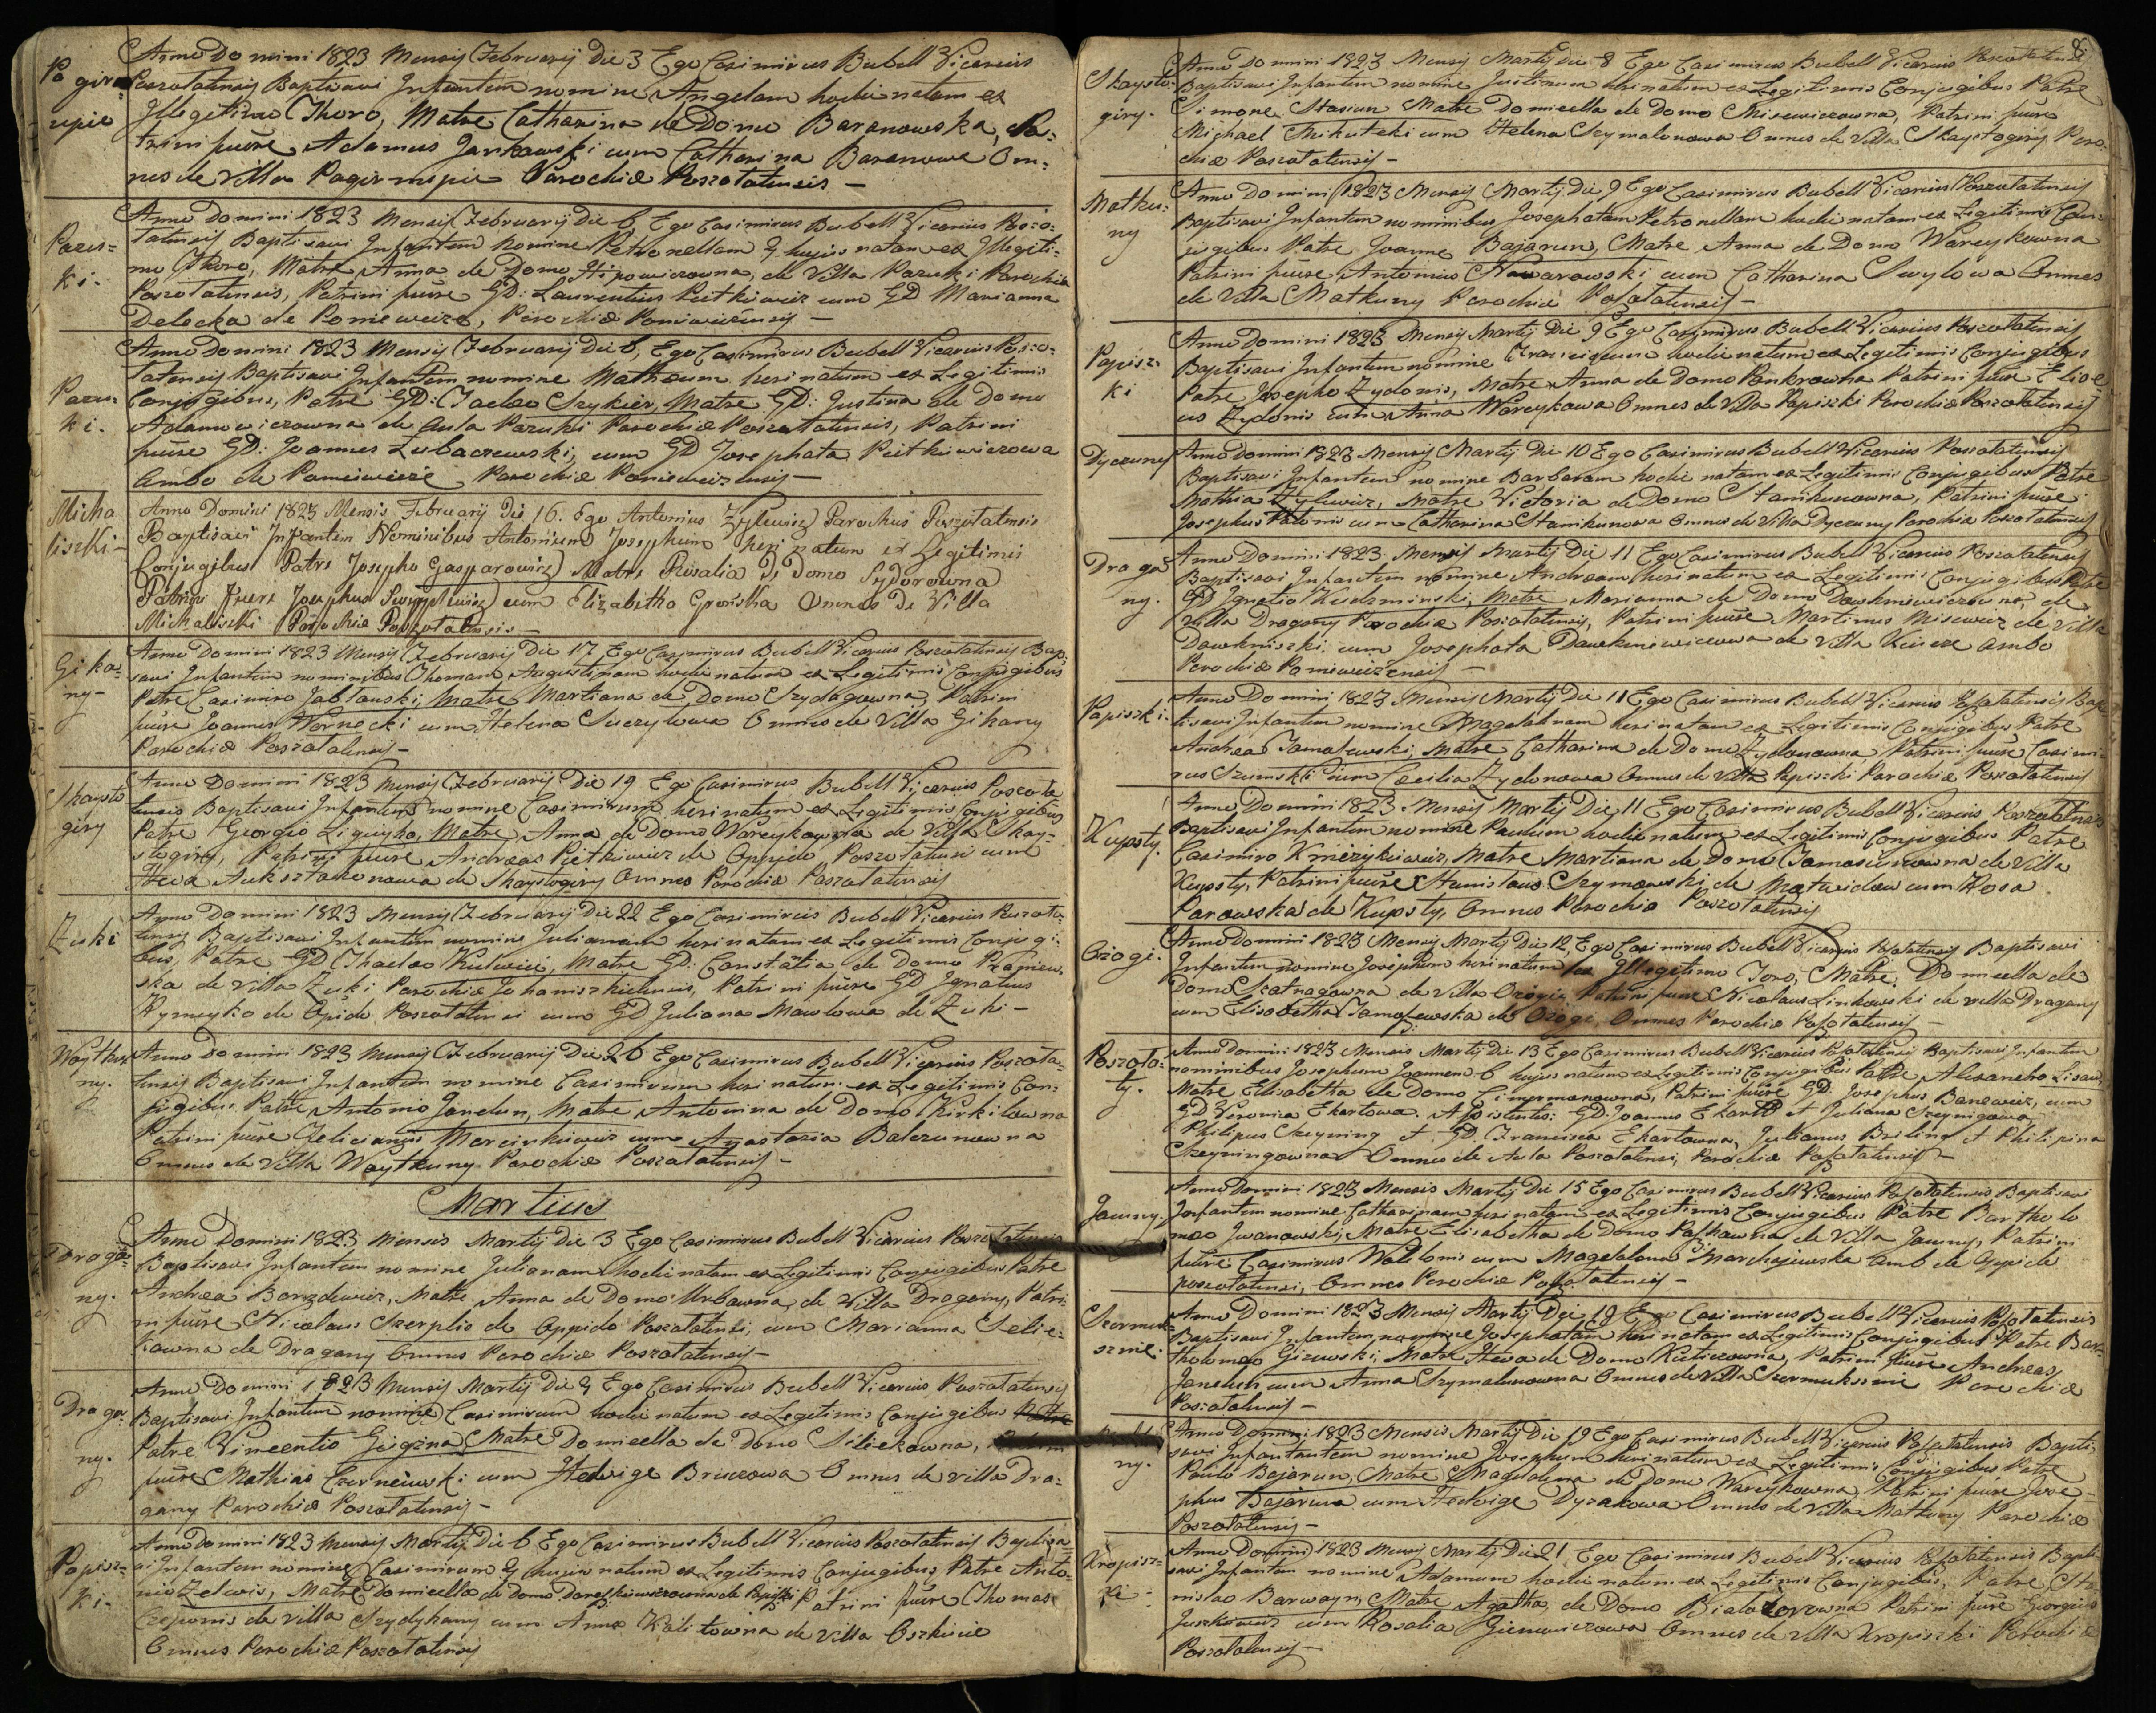 Pagirm-
upie
Anno Domini 1823 Mensis Februarij Die 3 Ego Casimirus Bubell Vicarius
Poszolatensis Baptisavi Infantem nomine Angelam hodie natam ex
Illegitimo Thoro, Matre Catharina de Domo Baranowska, Pa-
trini fuere Adamus Jankowski cum Catharina Baranowa Om-
nes de Villa Pagirmupie Parochiæ Poszolatensis –
Pazu-
ki.
Anno Domini 1823 Mensis Februarij Die 6 Ego Casimirus Bubell Vicarius Poszo-
latensis Baptisavi Infantem nomine Petronellam 4 hujus natam ex Illegiti-
mo Thoro, Matre Anna de Domo, de Villa Pazuki Parochiæ
Poszolatensis, Patrini fuere GD: Laurentius Pietkiewicz cum GD Marianna
Delecka de Poniewieze, Parochiæ Poniewiezensis –
Pazu-
ki.
Anno Domini 1823 Mensis Februarij Die 6, Ego Casimirus Bubell Vicarius Poszo-
latensis Baptisavi Infantem nomine Mathæum heri natum ex Legitimis
Conjugibus, Patre GD: Szykier, Matre GD: Justina de Domo
Adamowiczowna de Aula Pazuki Parochiæ Poszolatensis, Patrini
fuere GD: Joannes Lubaczewski, cum GD Josephata Pietkiewiczowa
Ambo de Poniewieze Parochiæ Poniewiezensis –
Micha
liszki –
Anno Domini 1823 Mensis Februarij Die 16. Ego Antonius Zylewicz Parochus Poszolatensis
Baptisavi Infantem Nominibus Antonium Josephum heri natum ex Legitimis
Conjugibus Patre Josepho Gasparowicz Matre Rosalia De Domo Sydorowna
Patrini Fuere Josephus cum Elizabetha Omnes De Villa
Michaliszki Parochiæ Poszolatensis –
Gika-
ny –
Anno Domini 1823 Mensis Februarij Die 17 Ego Casimirus Bubell Vicarius Poszolatensis Bap-
savi Infantem nominibus Thomam Augustinum hodie natum ex Legitimis Conjugibus
Patre Casimiro Jablonski, Matre Martiana de Domo, Patrini
fuere Joannes Wornocki cum Helena Omnes de Villa Gikany
Parochiæ Poszolatensis –
Skaysto
giry
Anno Domini 1823 Mensis Februarij Die 19 Ego Casimirus Bubell Vicarius Poszola
tensis Baptisavi Infantem nomine Casimirum heri natum ex Legitimis Conjugibus
Patre Georgio Matre Anna de Domo Warcykowna de Villa Skay-
stogiry, Patrini fuere Andreas Pietkiewicz de Oppido Poszolatensi cum
Heva de Skaystogiry Omnes Parochiæ Poszolatensis
Zuki
Anno Domini 1823 Mensis Februarij Die 22 Ego Casimirus Bubell Vicarius Poszola-
tensis Baptisavi Infantem nomine Julianam heri natam ex Legitimis Conjugi-
bus, Patre GD Matre GD: de Domo
ska de Villa Zuki Parochiæ Patrini fuere GD Ignatius
de Opido Poszolatensi cum GD Juliana de Zuki –
Woytku
ny.
Anno Domini 1823 Mensis Februarij Die 26 Ego Casimirus Bubell Vicarius Poszola-
tensis Baptisavi Infantem nomine Casimirum heri natum ex Legitimis Con-
jugibus Patre Antonio Janelun, Matre Antonina de Domo Kirkilowna
Patrini fuere Felicianus Marcinkiewicz cum Anastasia Balczunowna
Omnes de Villa Woytkuny Parochiæ Poszolatensis –
Martius
Draga-
ny.
Anno Domini 1823 Mensis Martij Die 3 Ego Casimirus Bubell Vicarius Poszolatensis
Baptisavi Infantem nomine Julianam hodie natam ex Legitimis Conjugibus Patre
Andrea Borzdewicz, Matre Anna de Domo Urbowna, de Villa Dragany, Patri-
ni fuere Nicolaus Szerplis de Oppido Poszolatensi, cum Marianna Selie-
kowna de Dragany Omnes Parochiæ Poszolatensis –
Draga-
ny.
Anno Domini 1823 Mensis Martij Die 4 Ego Casimirus Bubell Vicarius Poszolatensis
Baptisavi Infantem nomine Casimirum hodie natum ex Legitimis Conjugibus
Patre Vincentio Matre Domicella de Domo Siliekowna,
fuere Mathias Czerniewski cum Hedvige Bruzowa Omnes de Villa Dra-
gany Parochiæ Poszolatensis –
Papisz-
ki.
Anno Domini 1823 Mensis Martij Die 6 Ego Casimirus Bubell Vicarius Poszolatensis Baptisa-
vi Infantem nomine Casimirum 4 hujus natum ex Legitimis Conjugibus Patre Anto-
nio Zelwis, Matre Domicella de Domo Patrini fuere Thomas
de Villa Szydykany cum Anna de Villa
Omnes Parochiæ Poszolatensis
8
Skaysto-
giry.
Anno Domini 1823 Mensis Martij Die 8 Ego Casimirus Bubell Vicarius Poszolatensis
Baptisavi Infantem nomine Justinum heri natum ex Legitimis Conjugibus Patre
Simone Stasiun Matre Domicella de Domo Misiewiczowna, Patrini fuere
Michael Mikutski cum Helena Szymalonowa Omnes de Villa Skaystogiry Paro-
chiæ Poszolatensis –
Matku-
ny
Anno Domini 1823 Mensis Martij Die 9 Ego Casimirus Bubell Vicarius Poszolatensis
Baptisavi Infantem nominibus Josephatam Petronellam hodie natam ex Legitimis Con-
jugibus Patre Joanne Bajarun, Matre Anna de Domo Warcykowna
Patrini fuere Antonius Nawarowski cum Catharina Swylowa Omnes
de Villa Matkuny Parochiæ Poszolatensis –
Papisz-
ki
Anno Domini 1823 Mensis Martij Die 9 Ego Casimirus Bubell Vicarius Poszolatensis
Baptisavi Infantem nomine Franciscum hodie natum ex Legitimis Conjugibus
Patre Josepho Zydonis, Matre Anna de Domo Ponkrowna Patrini fuere
Zydonis cum Anna Warcykowa Omnes de Villa Papiszki Parochiæ Poszolatensis
Dyczuny
Anno Domini 1823 Mensis Martij Die 10 Ego Casimirus Bubell Vicarius Poszolatensis
Baptisavi Infantem nomine Barbaram hodie natam ex Legitimis Conjugibus Patre
Mathia Zylewicz, Matre Victoria de Domo Stanikunowna, Patrini fuere
Josephus cum Catharina Stanikunowa Omnes de Villa Dyczuny Parochiæ Poszolatensis
Draga-
ny.
Anno Domini 1823 Mensis Martij Die 11 Ego Casimirus Bubell Vicarius Poszolatensis
Baptisavi Infantem nomine Andream heri natum ex Legitimis Conjugibus Patre
GD Ignatio Kudzminski, Matre Marianna de Domo Dowkniewiczowna, de
Villa Dragany Parochiæ Poszolatensis, Patrini fuere Martinus Misiewicz de Villa
Dawkniszki cum Josephata Dawkniewiczowa de Villa ambo
Parochiæ Poniewiezensis –
Papiszki.
Anno Domini 1823 Mensis Martij Die 11 Ego Casimirus Bubell Vicarius Poszolatensis Bap-
tisavi Infantem nomine Magdalenam heri natam ex Legitimis Conjugibus Patre
Andrea Matre Catharina de Domo Zydonowna, Patrini fuere Casimi-
rus Szumski cum Cæcilia Zydonowa Omnes de Villa Papiszki Parochiæ Poszolatensis
Kuposty.
Anno Domini 1823 Mensis Martij Die 11 Ego Casimirus Bubell Vicarius Poszolatensis
Baptisavi Infantem nomine Paulum hodie natum ex Legitimis Conjugibus Patre
Casimiro Matre Martiana de Domo Tamasiewiczowna de Villa
Kuposty, Patrini fuere Stanislaus Szymanski de cum Rosa
Parowska de Kuposty, Omnes Parochiæ Poszolatensis
Ozogi.
Anno Domini 1823 Mensis Martij Die 12, Ego Casimirus Bubell Vicarius Poszolatensis Baptisavi
Infantem nomine Josephum heri natum ex Illegitimo Toro, Matre Domicella de
Domo de Villa Ozogie Patrini fuere Nicolaus Linkowski de Villa Dragany
cum Elisabetha de Ozogi, Omnes Parochiæ Poszolatensis –
Poszola-
ty.
Anno Domini 1823 Mensis Martij Die 13 Ego Casimirus Bubell Vicarius Poszolatensis Baptisavi Infantem
nominibus Josephum Joannem 6 hujus natum ex Legitimis Conjugibus Patre Alexandro
Matre Elisabetha de Domo Cimermanowna, Patrini fuere GD: Josephus Banewicz, cum
GD Veronia Ekartowa. Assistentes: GD: Joannes Ekart et Juliana Szeyningowa,
Philipus Szeyning et GD. Francisca Ekartowna, Julianus Briling et Philipina
Szeyningowna Omnes de Aula Poszolatensi, Parochiæ Poszolatensis –
Jawny,
Anno Domini 1823 Mensis Martij Die 15 Ego Casimirus Bubell Vicarius Poszolatensis Baptisavi
Infantem nomine Catharinam heri natam ex Legitimis Conjugibus Patre Bartholo
mæo Iwanowski, Matre Elisabetha de Domo de Villa Jawny, Patrini
fuere Casimirus cum Magdalena Marchajewska amb de Oppido
Poszolatensi, Omnes Parochiæ Poszolatensis –
Szermuk-
sznie.
Anno Domini 1823 Mensis Martij Die 19 Ego Casimirus Bubell Vicarius Poszolatensis
Baptisavi Infantem nomine Josephatam heri natam ex Legitimis Conjugibus Patre Bar-
tholomæo Gizewski, Matre Heva de Domo Patrini fuere Andreas
Janelun cum Anna Szymalunowna Omnes de Villa Szermuksznie Parochiæ
Poszolatensis –
ny.
Anno Domini 1823 Mensis Martij Die 19 Ego Casimirus Bubell Vicarius Poszolatensis Bapti-
savi Infantem nomine Josephum heri natum ex Legitimis Conjugibus Patre
Paulo Bajarun, Matre Magdalena de Domo Warcykowna, Patrini fuere Jose-
phus Bajarun cum Hedvige Dyrzakowa Omnes de Villa Matkuny Parochiæ
Poszolatensis –
Kropisz-
ki.
Anno Domini 1823 Mensis Martij Die 21 Ego Casimirus Bubell Vicarius Poszolatensis Bapti-
savi Infantem nomine Adamum hodie natum ex Legitimis Conjugibus, Patre Sta-
nislao Barwayn, Matre Agatha de Domo Bialozorowna Patrini fuere Georgius
Juszkiewicz cum Rosalia Omnes de Villa Kropiszki Parochiæ
Poszolatensis –